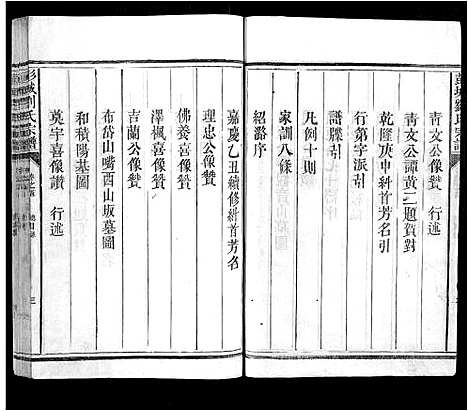 彭城劉氏宗譜
青文公像贊 行述
青文公譚黃二題賀對
乾隆庚申糾首芳名引
行第字派引
譜牒引
凡例十則
家訓八條
紹豁序
嘉慶乙丑續修糾首芳名
理忠公像贊
佛養喜像贊
澤楓喜像贊
吉蘭公像贊
布岱山嘴酉山坂墓圖
和積陽基圖
莫宇喜像讚 行述
彭城劉氏宗譜
三